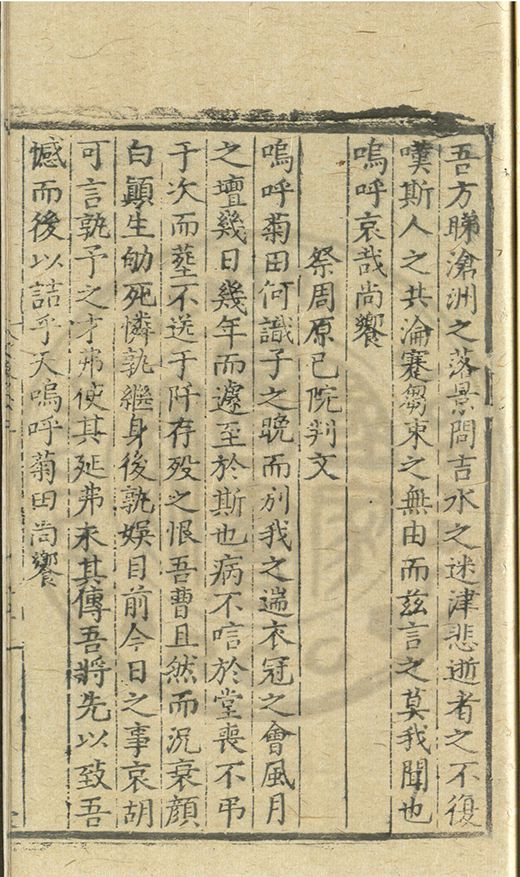 吾方睇滄洲之落景問吉水之迷津悲逝者之不復
嘆斯人之共淪蹇芻束之無由而兹言之莫我聞也
嗚呼哀哉尚饗
祭周原已院判文
嗚呼菊田何識子之晚而别我之遄衣冠之會風月
之壇幾日幾年而遽至於斯也病不唁於堂喪不弔
于次而塟不送于阡存殁之恨吾曹且然而况衰顔
白顛生劬死憐孰繼身後孰娛目前今日之事哀胡
可言孰予之才弗使其延弗末其傳吾將先以致吾
憾而後以詰乎天嗚呼菊田尚饗